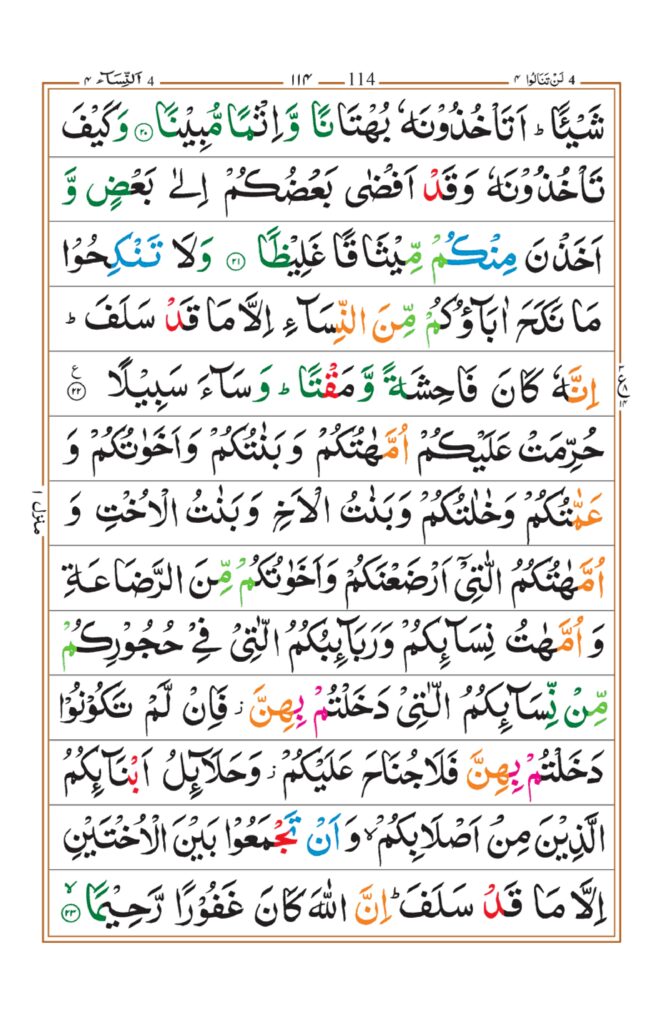 4 اَلنِّسَآء ۴ ۱۱۴ 114 4 لَنْ تَنَالُوا ۴
شَيْـًٔا ؕ اَتَاْخُذُوْنَهٗ بُهْتَانًا وَّاِثْمًا مُّبِيْنًا ۲۰ وَكَيْفَ
تَاْخُذُوْنَهٗ وَقَدْ اَفْضٰى بَعْضُكُمْ اِلٰى بَعْضٍ وَّ
اَخَذْنَ مِنْكُمْ مِّيْثَاقًا غَلِيْظًا ۲۱ وَلَا تَنْكِحُوْا
مَا نَكَحَ اٰبَآؤُكُمْ مِّنَ النِّسَآءِ اِلَّا مَا قَدْ سَلَفَ ؕ
اِنَّهٗ كَانَ فَاحِشَةً وَّمَقْتًا ؕ وَسَآءَ سَبِيْلًا ۲۲ ع
حُرِّمَتْ عَلَيْكُمْ اُمَّهٰتُكُمْ وَبَنٰتُكُمْ وَاَخَوٰتُكُمْ وَ
عَمّٰتُكُمْ وَخٰلٰتُكُمْ وَبَنٰتُ الْاَخِ وَبَنٰتُ الْاُخْتِ وَ
اُمَّهٰتُكُمُ الّٰتِيْٓ اَرْضَعْنَكُمْ وَاَخَوٰتُكُمْ مِّنَ الرَّضَاعَةِ
وَاُمَّهٰتُ نِسَآئِكُمْ وَرَبَآئِبُكُمُ الّٰتِيْ فِيْ حُجُوْرِكُمْ
مِّنْ نِّسَآئِكُمُ الّٰتِيْ دَخَلْتُمْ بِهِنَّ ز فَاِنْ لَّمْ تَكُوْنُوْا
دَخَلْتُمْ بِهِنَّ فَلَا جُنَاحَ عَلَيْكُمْ ز وَحَلَآئِلُ اَبْنَآئِكُمُ
الَّذِيْنَ مِنْ اَصْلَابِكُمْ ۙ وَاَنْ تَجْمَعُوْا بَيْنَ الْاُخْتَيْنِ
اِلَّا مَا قَدْ سَلَفَ ؕ اِنَّ اللّٰهَ كَانَ غَفُوْرًا رَّحِيْمًا ۙ ۲۳
منزل ۱